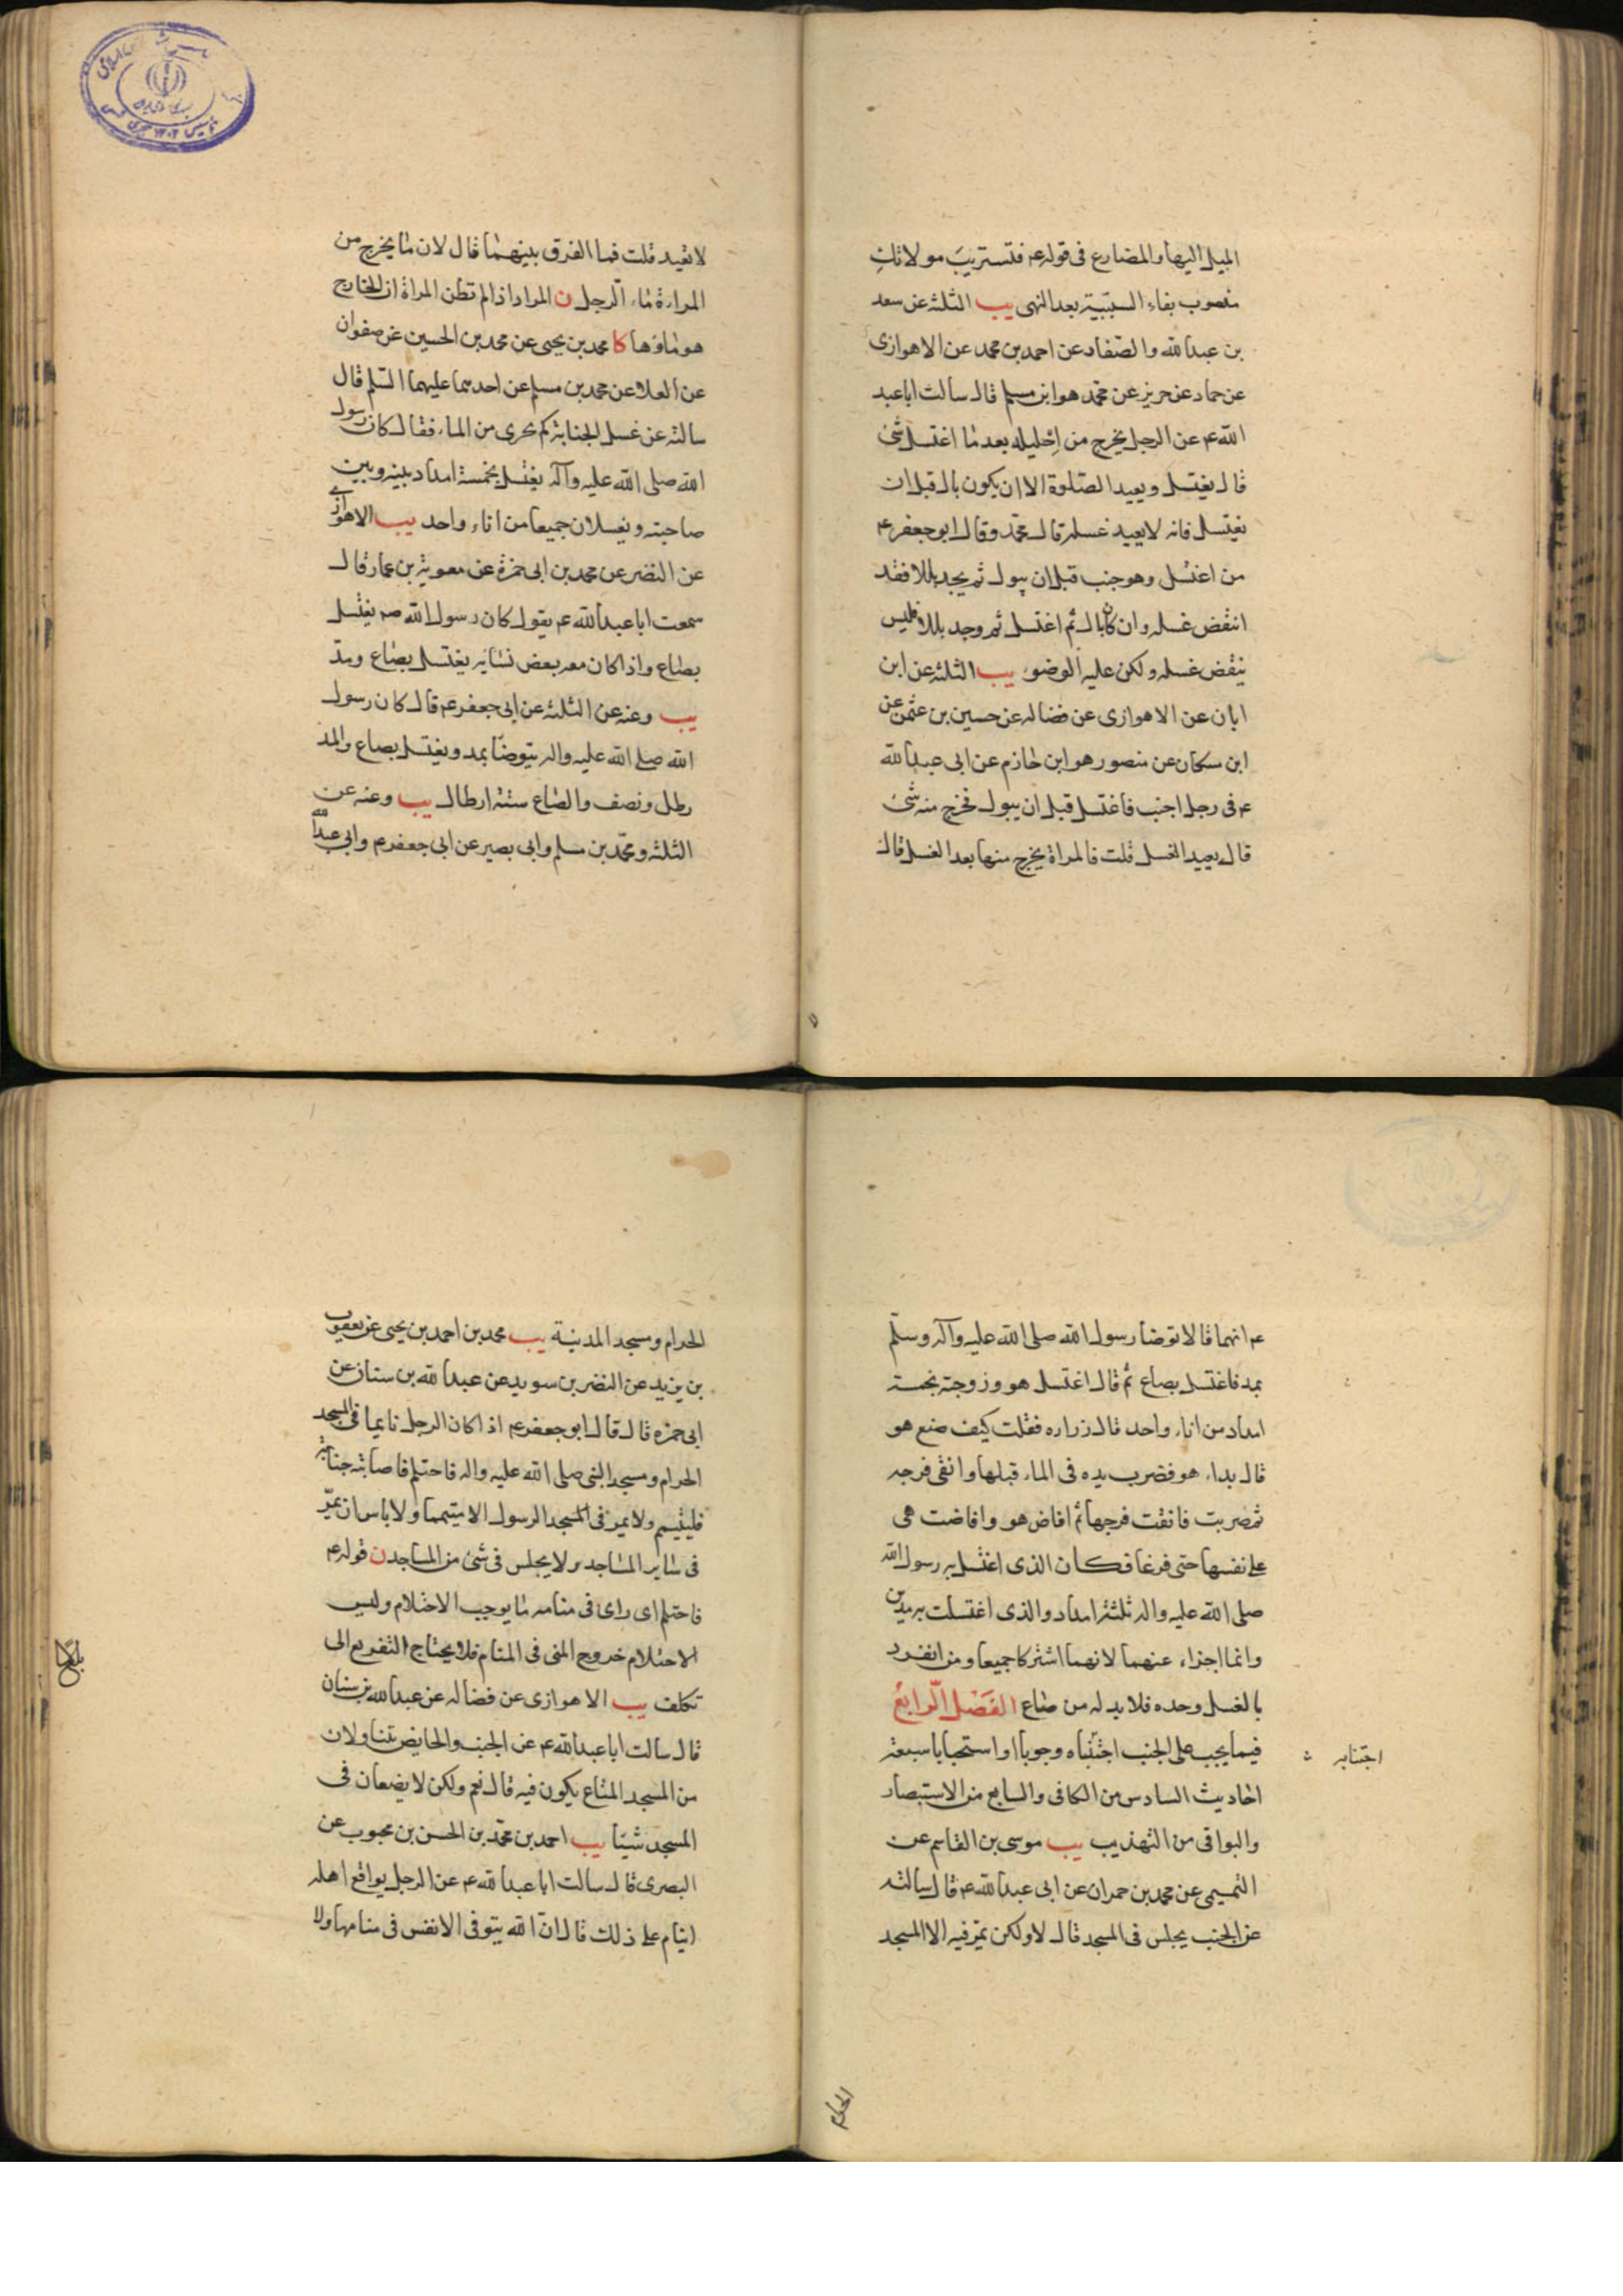 الميل اليها والمضارع فى قوله ع فتستريب مولاتك
منصوب بفاء السببية بعد النهى يب الثلثة عن سعد
بن عبد الله والصفار عن احمد بن محمد عن الاهوازى
عن حماد عن حريز عن محمد هو ابن مسلم قال سالت ابا عبد
الله ع عن الرجل يخرج من احليله بعد ما اغتسل شئ
قال يغتسل ويعيد الصلوة الا ان يكون بال قبل ان
يغتسل فانه لا يعيد غسله قال محمد وقال ابو جعفر ع
من اغتسل وهو جنب قبل ان يبول ثم يجد بللا فقد
انتقض غسله وان كان بال ثم اغتسل ثم وجد بللا فليس
ينقض غسله ولكن عليه الوضوء يب الثلثة عن ابن
ابان عن الاهوازى عن فضاله عن حسين بن عثمن عن
ابن سكان عن منصور هو ابن حازم عن ابى عبد الله
ع فى رجل اجنب فاغتسل قبل ان يبول فخرج منه شئ
قال يعيد الغسل قلت فالمراة يخرج منها بعد الغسل قال
لا تعيد قلت فما الفرق بينهما قال لان ما يخرج من
المراة ماء الرجل ن المراد اذا لم تظن المراة ان الخارج
هو ماؤها كا محمد بن يحيى عن محمد بن الحسين عن صفوان
عن العلا عن محمد بن مسلم عن احدهما عليهما السلم قال
سالته عن غسل الجنابة كم يجرى من الماء فقال كان رسول
الله صلى الله عليه وآله يغتسل بخمسة امداد بينه وبين
صاحبته ويغسلان جميعا من اناء واحد يب الاهوازى
عن النضر عن محمد بن ابى حمزة عن معوية بن عمار قال
سمعت ابا عبد الله ع يقول كان رسول الله صم يغتسل
بصاع واذا كان معه بعض نسائه يغتسل بصاع ومد
يب وعنه عن الثلثة عن ابى جعفر ع قال كان رسول
الله صلى الله عليه واله يتوضا بمد ويغتسل بصاع والمد
رطل ونصف والصاع ستة ارطال يب وعنه عن
الثلثه ومحمد بن مسلم وابى بصير عن ابى جعفر ع وابى عبد الله
ع انهما قالا توضا رسول الله صلى الله عليه وآله وسلم
بمد فاغتسل بصاع ثم قال اغتسل هو وزوجته بخمسة
امداد من اناء واحد قال زراره فقلت كيف صنع هو
قال بداء هو فضرب يده فى الماء قبلها وانقى فرجه
ثم ضربت فانقت فرجها ثم افاض هو وافاضت هى
على نفسها حتى فرغا فكان الذى اغتسل به رسول الله
صلى الله عليه واله ثلثة امداد والذى اغتسلت به مدين
وانما اجزاء عنهما لانهما اشتركا جميعا ومن انفرد
بالغسل وحده فلا بد له من صاع الفصل الرابع
فيما يجب على الجنب اجتنابه وجوبا او استحبابا سبعة
اجتنابه
احاديث السادس من الكافى والسابع من الاستبصار
والبواقى من التهذيب يب موسى بن القاسم عن
التميمى عن محمد بن حمران عن ابى عبد الله ع قال سالته
عن الجنب يجلس فى المسجد قال لا ولكن يمر فيه الا المسجد
الحرام
الحرام ومسجد المدينة يب محمد بن احمد بن يحيى عن يعقوب
بن يزيد عن النضر بن سويد عن عبد الله بن سنان عن
ابى حمزه قال قال ابو جعفر ع اذا كان الرجل نايما فى المسجد
الحرام ومسجد النبى صلى الله عليه واله فاحتلم فاصابته جنابة
فليتيمم ولا يمر فى المسجد الرسول الا متيمما ولا باس ان يمر
فى ساير المساجد ولا يجلس فى شئ من المساجد ن قوله ع
فاحتلم اى راى فى منامه ما يوجب الاحتلام وليس
الاحتلام خروج المنى فى المنام فلا يحتاج التفريع الى
تكلف يب الاهوازى عن فضاله عن عبد الله بن سنان
قال سالت ابا عبد الله ع عن الجنب والحايض يتناولان
من المسجد المتاع يكون فيه قال نعم ولكن لا يضعان فى
المسجد شيئا يب احمد بن محمد بن الحسن بن محبوب عن
البصرى قال سالت ابا عبد الله ع عن الرجل يواقع اهله
اينام على ذلك قال ان الله يتوفى الانفس فى منامها ولا